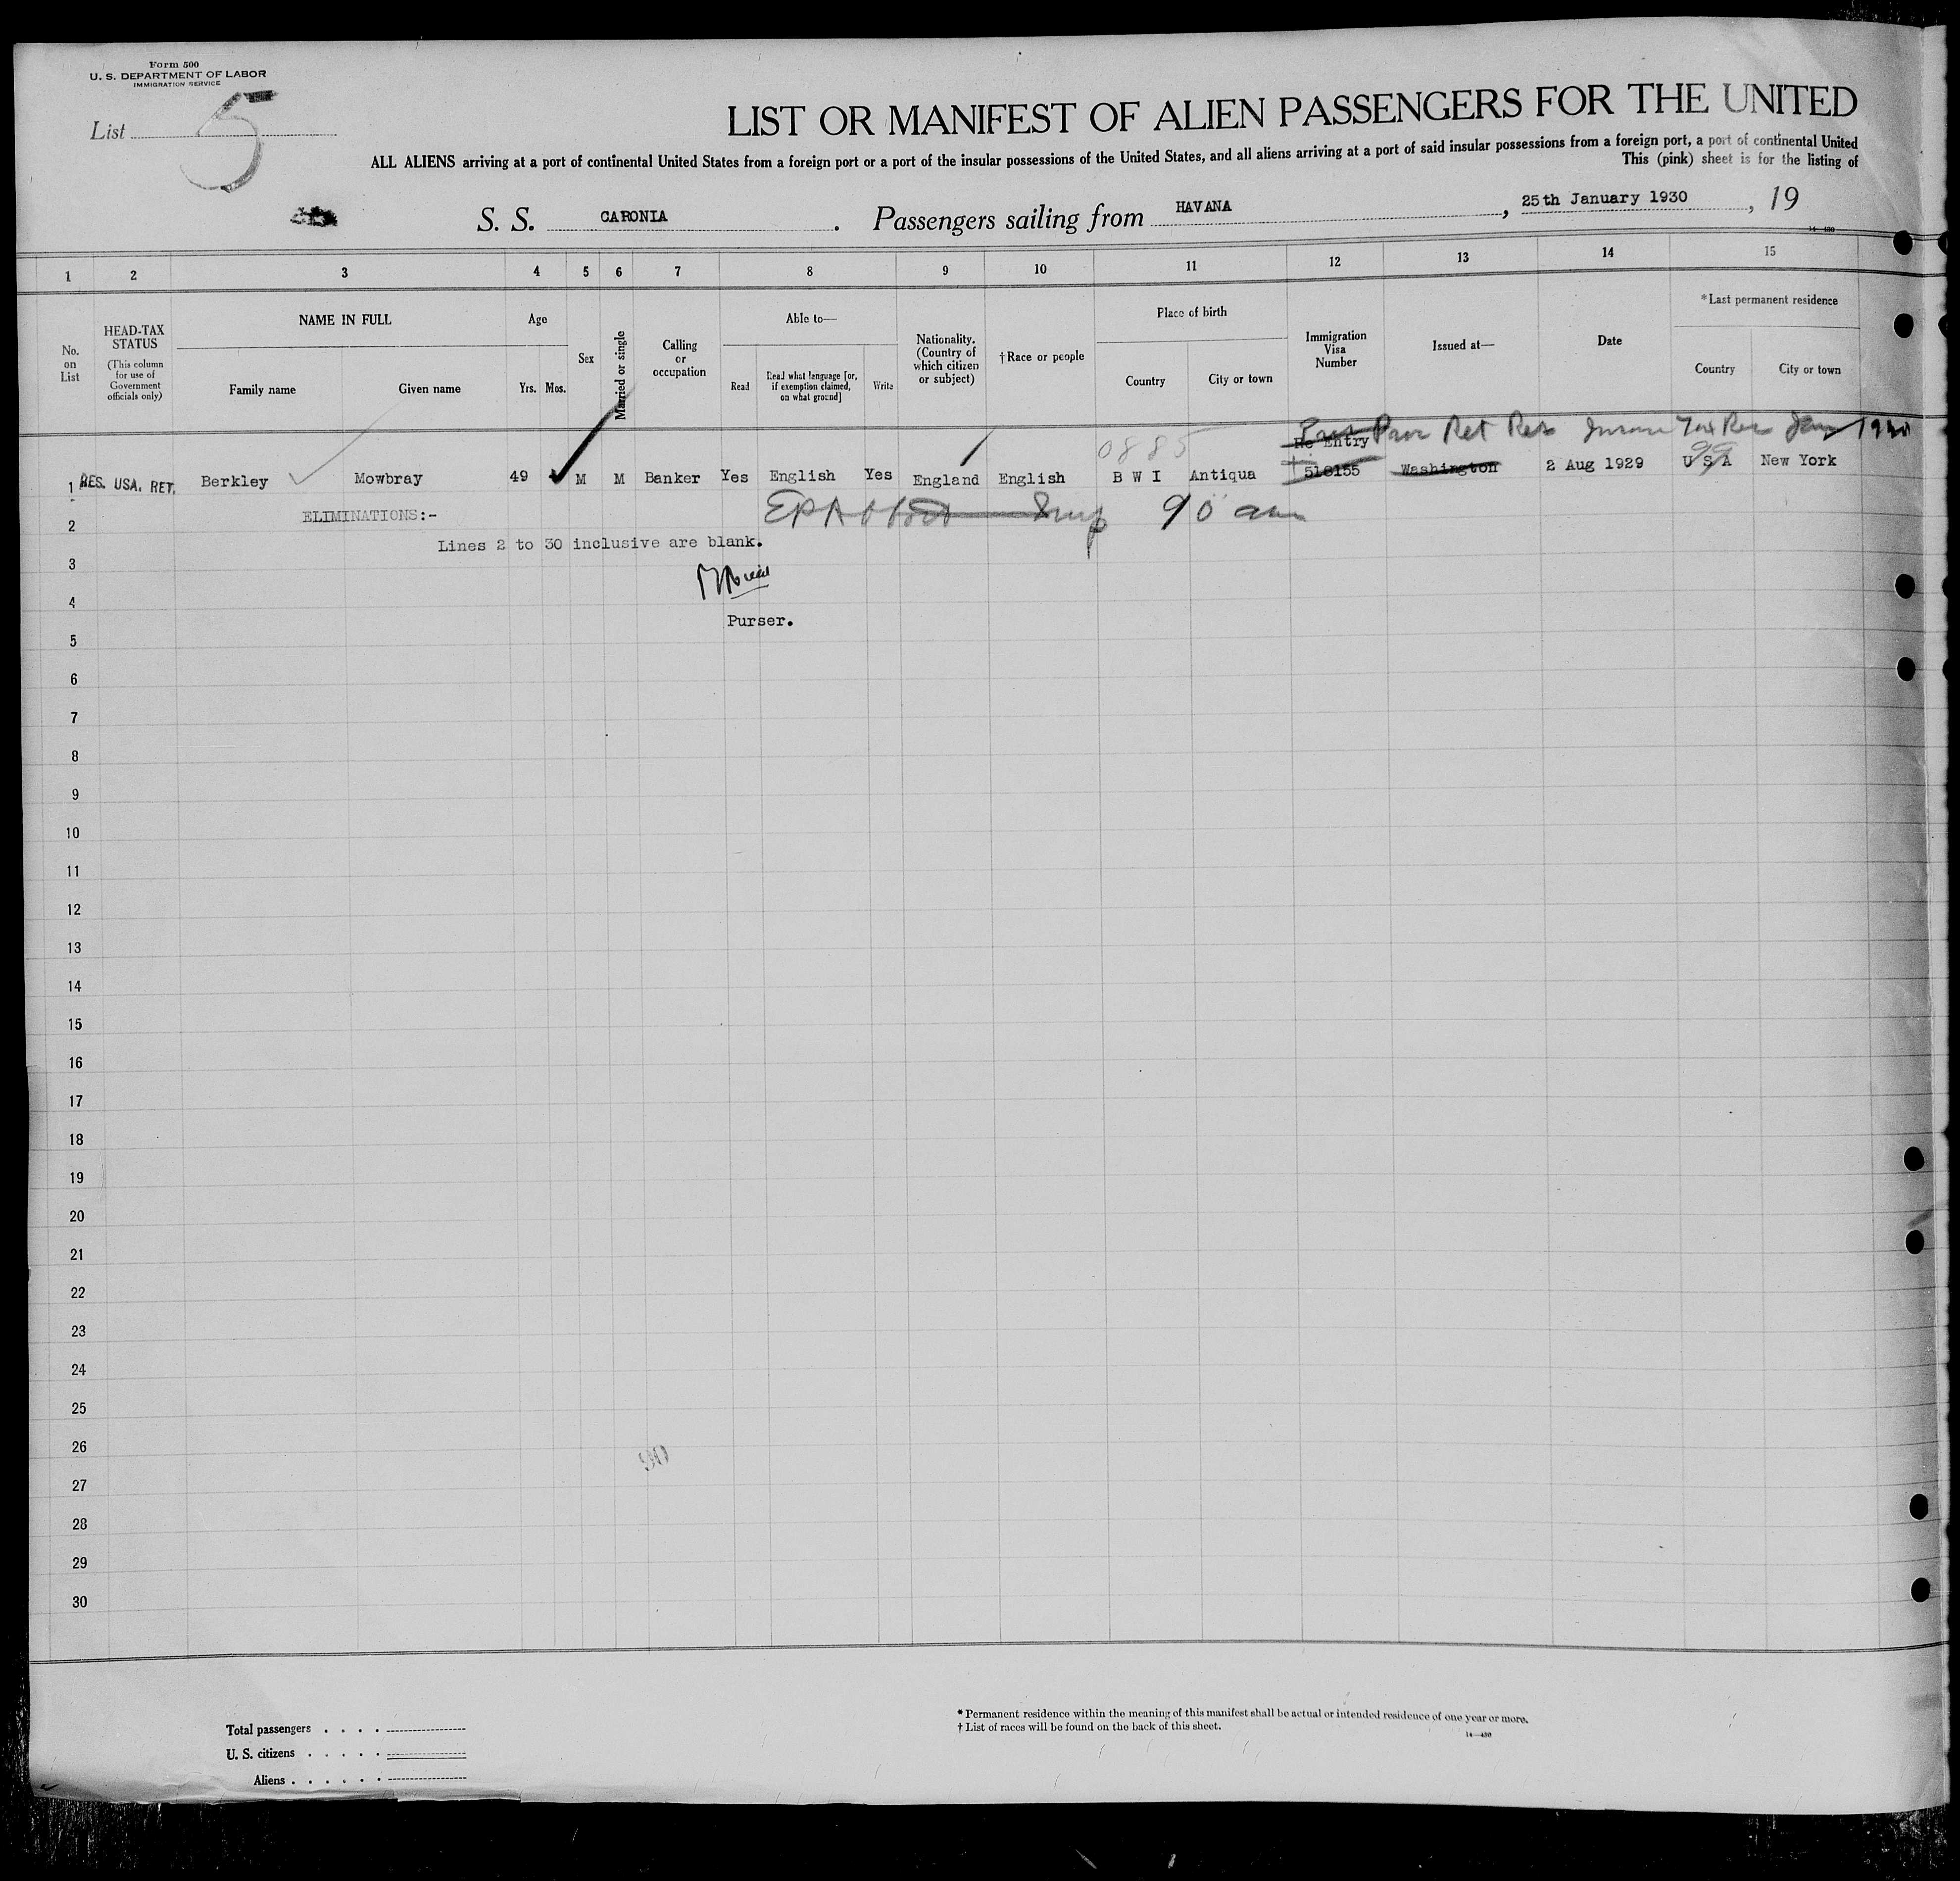 Form 500
U. S. DEPARTMENT OF LABOR
IMMIGRATION SERVICE
List 5
LIST OR MANIFEST OF ALIEN PASSENGERS FOR THE UNITED
ALL ALIENS arriving at a port of continental United States from a foreign port or a port of the insular possessions of the United States, and all aliens arriving at a port of said insular possessions from a foreign port, a port of continental United
This (pink) sheet is for the listing of
S. S. CARONIA. Passengers sailing from HAVANA, 25th January 1930, 19
14-430
1 2 3 4 5 6 7 8 9 10 11 12 13 14 15
No. on List
HEAD-TAX STATUS
(This column for use of Government officials only)
NAME IN FULL
Family name
Given name
Age
Yrs. Mos.
Sex
Married or single
Calling or occupation
Able to—
Read
Read what language [or, if exemption claimed, on what ground]
Write
Nationality. (Country of which citizen or subject)
†Race or people
Place of birth
Country
City or town
Immigration Visa Number
Issued at—
Date
*Last permanent residence
Country
City or town
Re Entry Ret Res Tax Rec Jan 1930
0885
1 RES. USA. RET. Berkley Mowbray 49 M M Banker Yes English Yes England English B W I Antiqua 518155 Washington 2 Aug 1929 U S A New York
ELIMINATIONS:-
2
Lines 2 to 30 inclusive are blank.
3
4
Purser.
5
6
7
8
9
10
11
12
13
14
15
16
17
18
19
20
21
22
23
24
25
26
27
28
29
30
Total passengers . . . .
U. S. citizens . . . . .
Aliens . . . . . .
* Permanent residence within the meaning of this manifest shall be actual or intended residence of one year or more.
† List of races will be found on the back of this sheet.
14-430